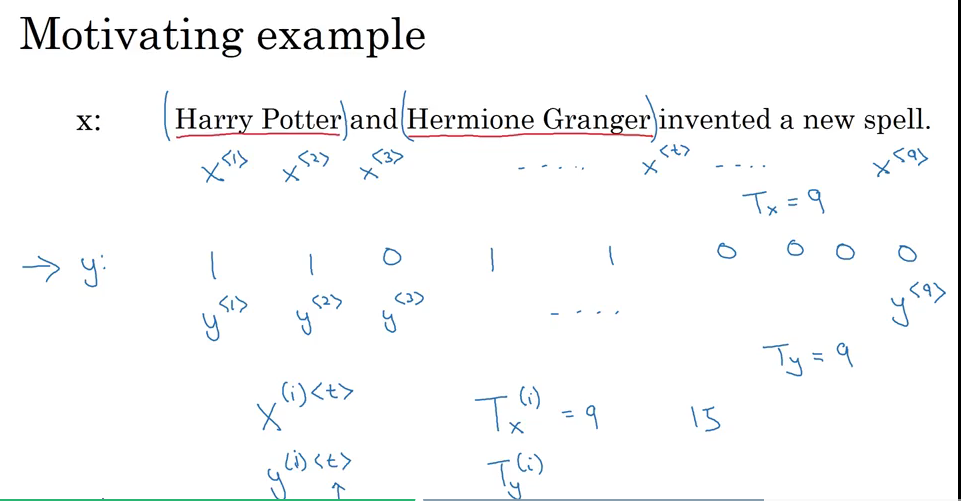 Motivating example
x: (Harry Potter) and (Hermione Granger) invented a new spell.
x<1> x<2> x<3> ..... x<t> .... x<9>
Tx = 9
→ y: 1 1 0 1 1 0 0 0 0
y<1> y<2> y<3> ..... y<9>
Ty = 9
X(i)<t> Tx(i) = 9 15
y(i)<t> Ty(i)
↑